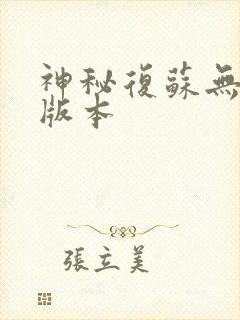 神秘復蘇無
版本
張立美